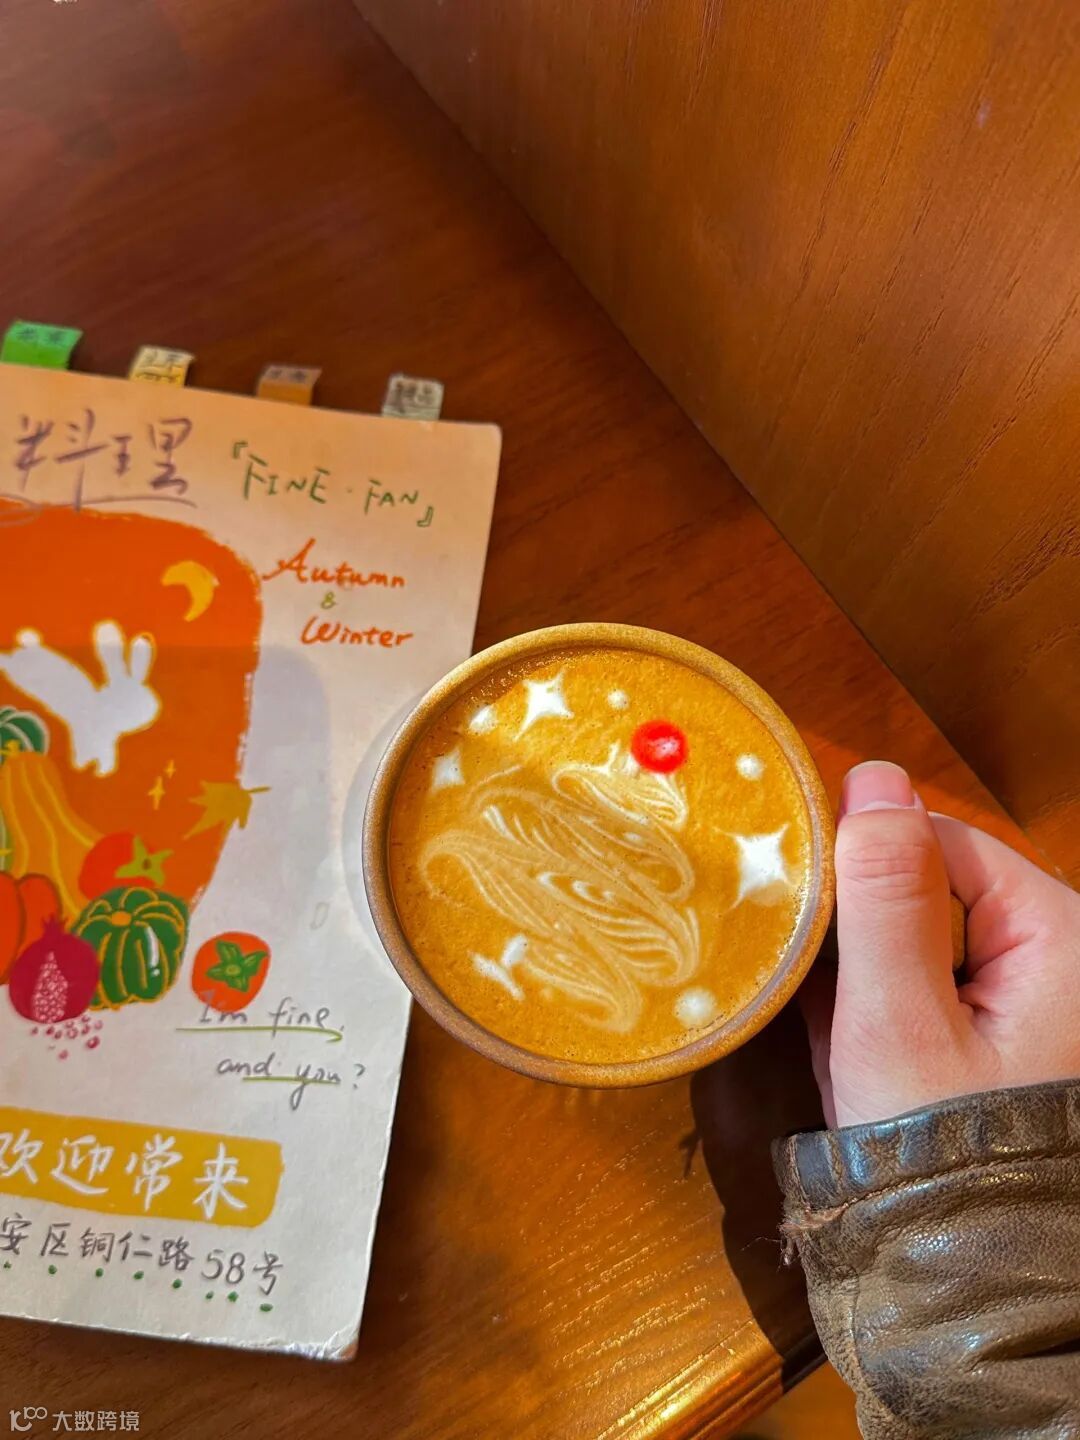 料理
『FINE·FAN』
Autumn
&
Winter
I'm fine,
and you?
欢迎常来
安区铜仁路58号
大数跨境